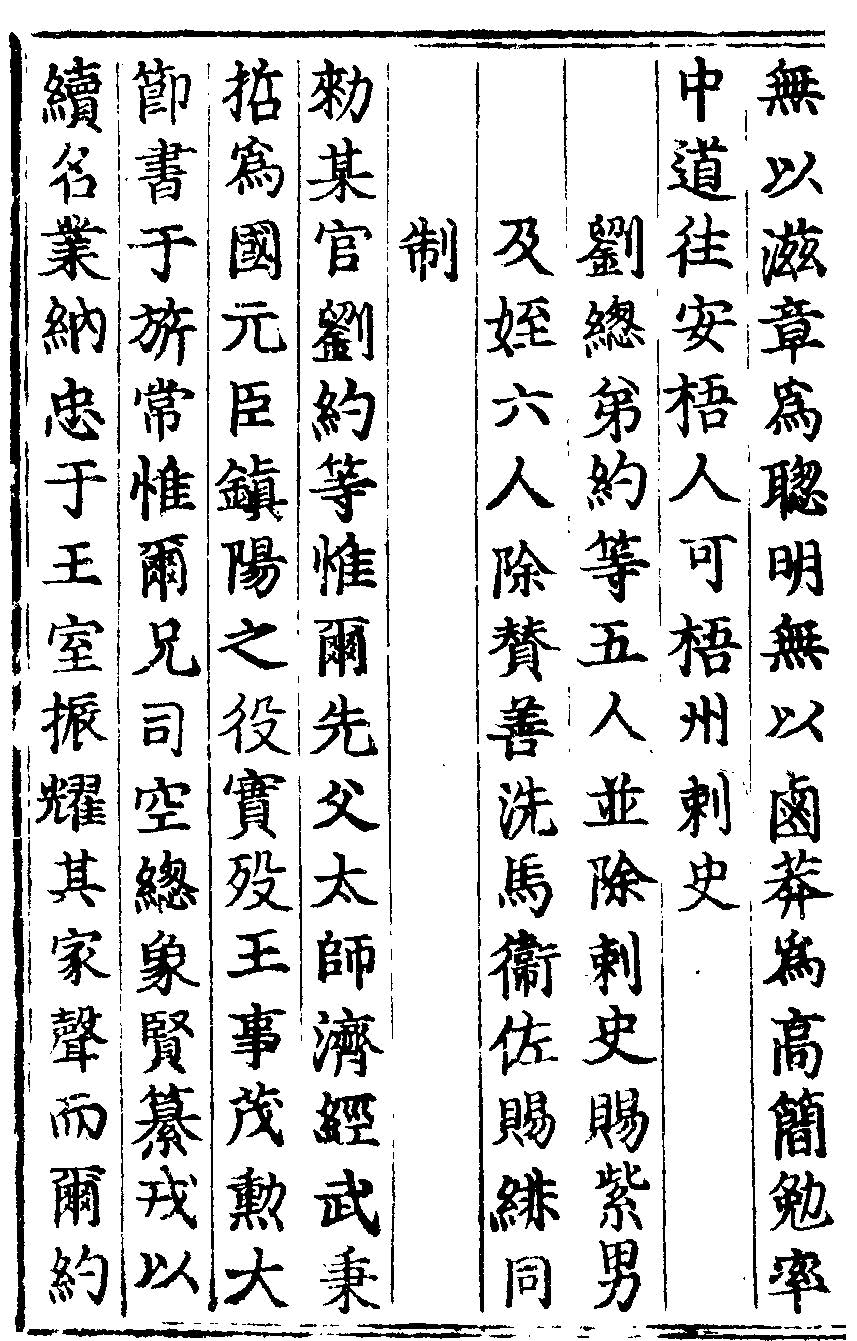 無以滋章爲聦明無以鹵莽爲高簡勉率
中道往安梧人可梧州刺史
劉緫弟約等五人並除刺史賜紫男
及姪六人除賛善洗馬衞佐賜緋同
制
勑某官劉約等惟爾先父太師濟經武秉
哲爲國元臣鎮陽之役實殁王事茂勳大
節書于旂常惟爾兄司空緫象賢纂戎以
續名業納忠于王室振耀其家聲而爾約